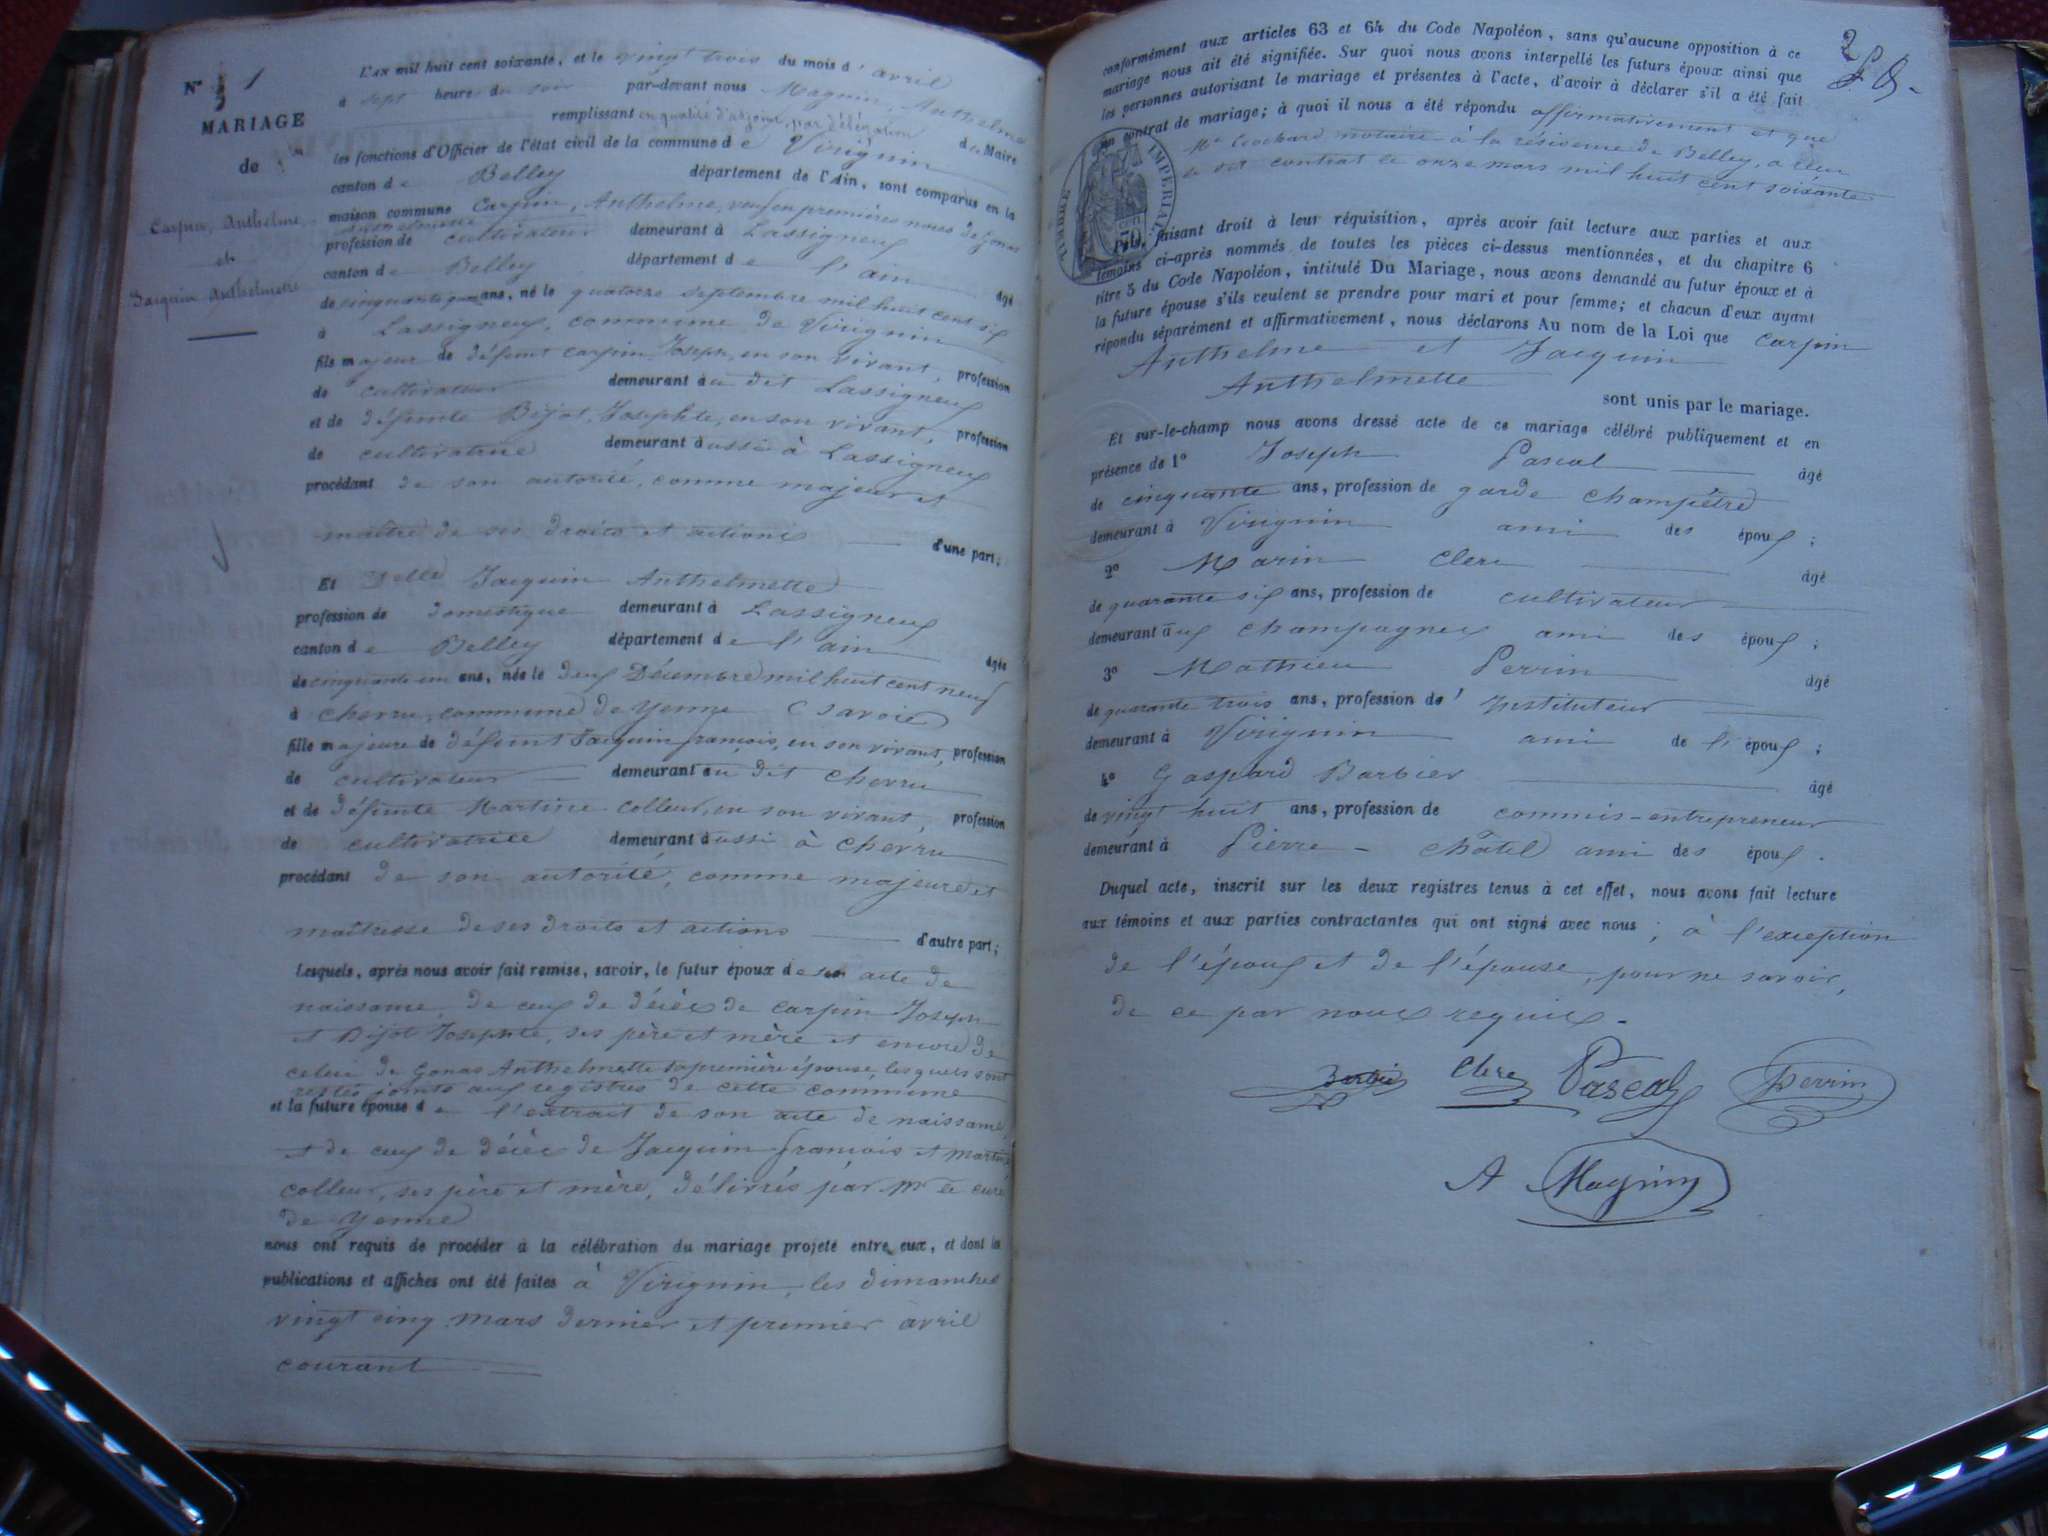 N° 1
MARIAGE
de
Carpin, Anthelme,
et
Jacquin Anthelmette
L'AN mil huit cent soixante, et le vingt trois du mois d'avril
à sept heures du soir par-devant nous Magnin, Anthelme
remplissant en qualité d'adjoint, par délégation du Maire
les fonctions d'Officier de l'état civil de la commune de Virignin
canton de Belley département de l'Ain, sont comparus en la
maison commune Carpin, Anthelme, veuf en premières noces de Gonas
Anthelmette
profession de cultivateur demeurant à Lassigneux
canton de Belley département de l'ain âgé
de cinquante ans, né le quatorze septembre mil huit cent six
à Lassigneux, commune de Virignin
fils majeur de défunt Carpin Joseph, en son vivant, profession
de cultivateur demeurant au dit Lassigneux
et de défunte Bijot, Josephte, en son vivant, profession
de cultivatrice demeurant aussi à Lassigneux
procédant de son autorité, comme majeur et
maître de ses droits et actions d'une part;
Et Delle Jacquin Anthelmette
profession de domestique demeurant à Lassigneux
canton de Belley département de l'ain âgée
de cinquante un ans, née le deux Décembre mil huit cent neuf
à Chevru, commune de Yenne (Savoie)
fille majeure de défunt Jacquin françois, en son vivant, profession
de cultivateur demeurant au dit Chevru
et de défunte Martine Colleur, en son vivant, profession
de cultivatrice demeurant aussi à Chevru
procédant de son autorité, comme majeure et
maîtresse de ses droits et actions d'autre part;
Lesquels, après nous avoir fait remise, savoir, le futur époux de son acte de
naissance, de ceux de décès de Carpin Joseph
et Bijot Josephte, ses père et mère et encore de
celui de Gonas Anthelmette sa première épouse, lesquels sont
restés joints aux registres de cette commune
et la future épouse de l'extrait de son acte de naissance,
et de ceux de décès de Jacquin françois et Martine
Colleur, ses père et mère, délivrés par Mr le curé
de Yenne
nous ont requis de procéder à la célébration du mariage projeté entre eux, et dont les
publications et affiches ont été faites à Virignin, les dimanches
vingt cinq mars dernier et premier avril
courant
2
conformément aux articles 63 et 64 du Code Napoléon, sans qu'aucune opposition à ce
mariage nous ait été signifiée. Sur quoi nous avons interpellé les futurs époux ainsi que
les personnes autorisant le mariage et présentes à l'acte, d'avoir à déclarer s'il a été fait
un contrat de mariage; à quoi il nous a été répondu affirmativement et que
Me Cochard notaire à la résidence de Belley, a reçu
le dit contrat le onze mars mil huit cent soixante
TIMBRE IMPÉRIAL
faisant droit à leur réquisition, après avoir fait lecture aux parties et aux
témoins ci-après nommés de toutes les pièces ci-dessus mentionnées, et du chapitre 6
titre 5 du Code Napoléon, intitulé Du Mariage, nous avons demandé au futur époux et à
la future épouse s'ils veulent se prendre pour mari et pour femme; et chacun d'eux ayant
répondu séparément et affirmativement, nous déclarons Au nom de la Loi que Carpin
Anthelme et Jacquin
Anthelmette
sont unis par le mariage.
Et sur-le-champ nous avons dressé acte de ce mariage célébré publiquement et en
présence de 1° Joseph Pascal âgé
de cinquante ans, profession de garde champêtre
demeurant à Virignin ami des époux;
2° Marin Clerc âgé
de quarante six ans, profession de cultivateur
demeurant aux Champagnes ami des époux;
3° Mathieu Perrin âgé
de quarante trois ans, profession d'Instituteur
demeurant à Virignin ami de l'époux;
4° Gaspard Barbier âgé
de vingt huit ans, profession de commis-entrepreneur
demeurant à Pierre-Châtel ami des époux.
Duquel acte, inscrit sur les deux registres tenus à cet effet, nous avons fait lecture
aux témoins et aux parties contractantes qui ont signé avec nous; à l'exception
de l'époux et de l'épouse, pour ne savoir,
de ce par nous requis.
Barbier Clerc Pascal Perrin
A Magnin